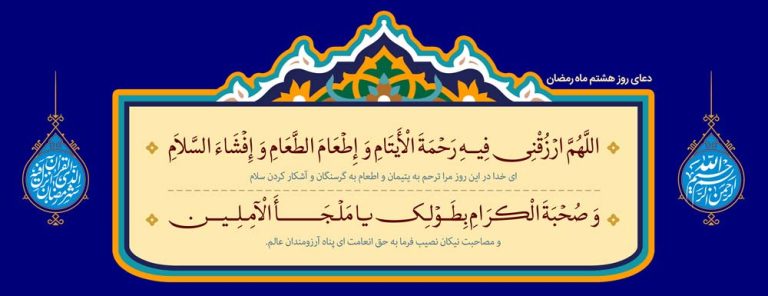 دعای روز هشتم ماه رمضان
اللَّهُمَّ ارْزُقْنِی فِیهِ رَحْمَةَ الْأَیْتَامِ وَ إِطْعَامَ الطَّعَامِ وَ إِفْشَاءَ السَّلاَمِ
ای خدا در این روز مرا ترحم به یتیمان و اطعام به گرسنگان و آشکار کردن سلام
وَ صُحْبَةَ الْکِرَامِ بِطَوْلِکَ یا مَلْجَأَ الْآمِلِینَ
و مصاحبت نیکان نصیب فرما به حق انعامت ای پناه آرزومندان عالم.
بسم الله الرحمن الرحیم
شهر رمضان الذی انزل فیه القرآن